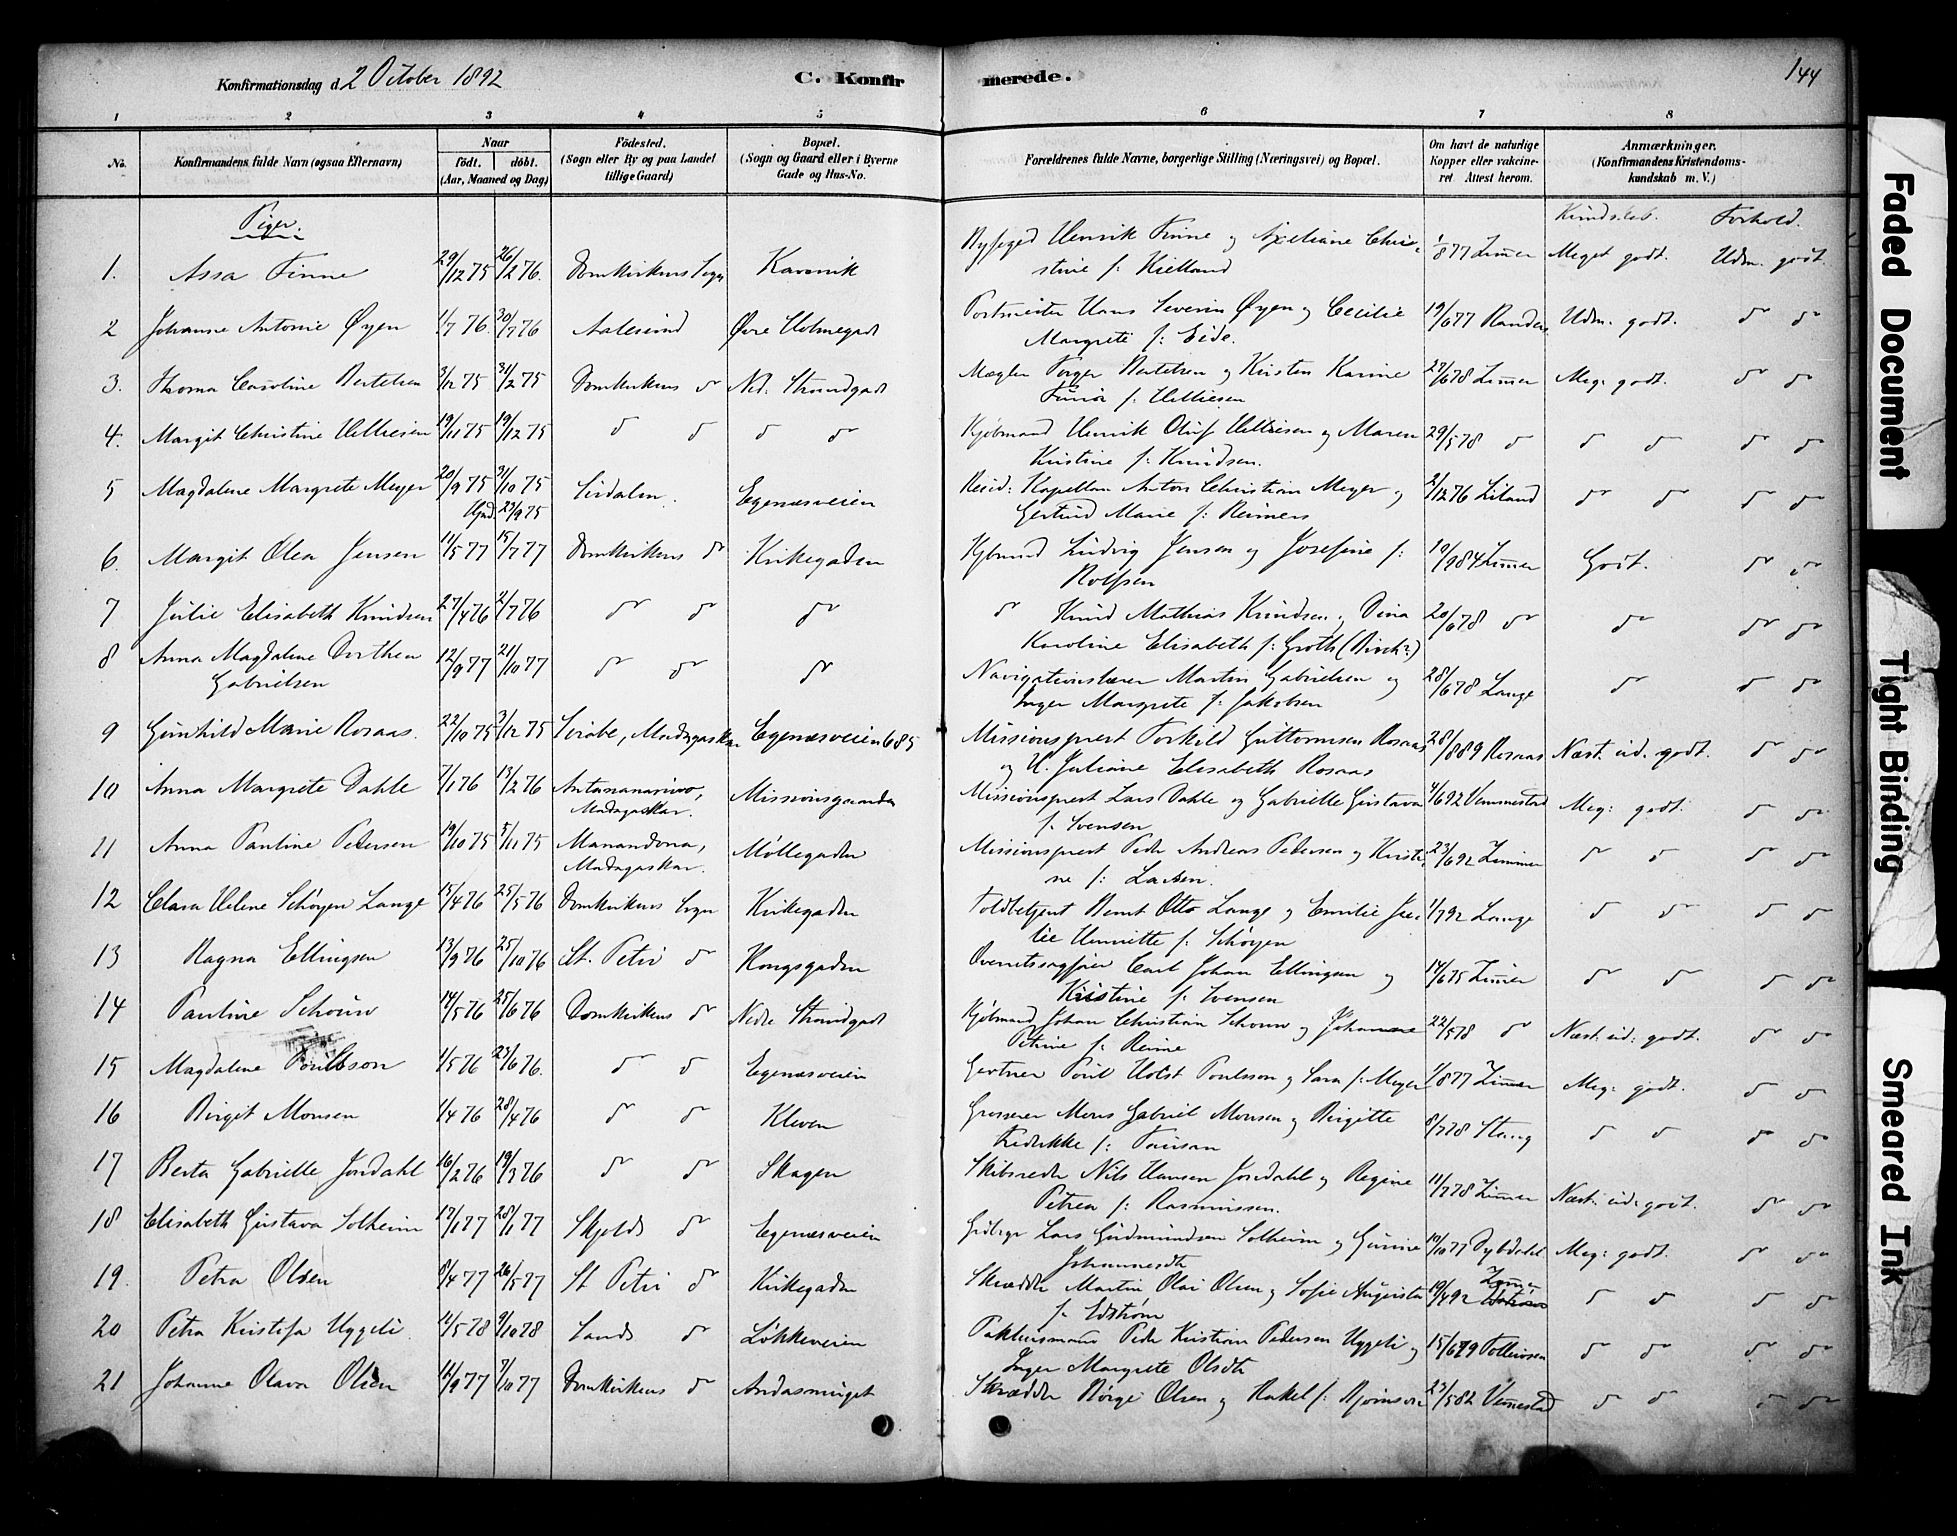 Konfirmationsdag d. 2 October 1892 C. Konfirmerede. 144
1 2 3 4 5 6 7 8
No. Konfirmandens fulde Navn (ogsaa Efternavn) Naar født. døbt. (Aar, Maaned og Dag) Fødested. (Sogn eller By og paa Landet tillige Gaard) Bopæl. (Sogn og Gaard eller i Byerne Gade og Hus-No. Forældrenes fulde Navne, borgerlige Stilling (Næringsvei) og Bopæl. Om havt de naturlige Kopper eller vakcineret Attest herom. Anmærkninger. (Konfirmandens Kristendomskundskab m. V.)
Piger. Kundskab. Forhold.
1. Assa Finne 29/12 75 26/2 76. Domkirkens Sogn Kannik Byfoged Henrik Finne og Axeliane Christine f: Kielland 1/8 77 Zimer Meget godt. Udm. godt.
2 Johanne Antonie Øyen 1/7 76. 30/7 76 Aalesund Øvre Holmegade Postmester Hans Severin Øyen og Cecilie Margrete f: Eide. 19/6 77 Randers Udm. godt. do do
3. Thoma Caroline Bertelsen 3/12 75 31/2 75 Domkirkens do Ned. Strandgade Mægler Torger Bertelsen og Kirsten Karine f: Helliesen 27/6 78 Zimer Meg. godt. do do
4. Margit Christine Helliesen 19/11 75 19/12 75 do do do do Kjøbmand Henrik Oluf Helliesen og Maren Kristine f: Knudsen. 29/5 78 do do do do do
5 Magdalene Margrete Meyer 20/9 75 31/10 75 Hjmd. 23/9 75 Sirdalen. Egenæsveien Resid: Kapellan Anton Christian Meyer og Gertrud Marie f: Reimers 2/12 76 Liland do do do do
6. Margit Olea Jensen 11/5 77 15/7 77 Domkirkens do Kirkegaden Kjbmand Ludvig Jensen og Josefine f: Rolfsen 10/9 84 Zimmer Godt. do do
7 Julie Elisabeth Knudsen 27/4 76 2/7 76 do do do do Knud Mathias Knudsen og Dina Karoline Elisabeth f: Groth (Birch?) 20/6 78 do do do do
8 Anna Magdalene Dorthea Gabrielsen 12/9 77 21/10 77 do do do Navigationslærer Martin Gabrielsen og Inger Margrete f: Jakobsen 28/6 78 Lange do do do
9 Gunhild Marie Rosaas. 22/10 75 3/12 75 Sirabe, Madagaskar Egenæsveien 685 Missionsprest Torkild Guttormsen Rosaas og H. Juliane Elisabeth Rosaas 28/8 89 Rosaas Næst. ud. godt. do do
10 Anna Margrete Dahle 7/1 76 13/2 76 Antananarivo, Madagaskar. Missionsgaarden Missionsprest Lars Dahle og Gabrielle Gustava f: Svensen 4/6 92 Vennestad Meg: godt. do do
11 Anna Pauline Pedersen 19/10 75 5/11 75 Manandona, Madagaskar. Møllegaden Missionsprest Peder Andreas Pedersen og Kristine f: Larsen. 23/6 92 Zimmer do do do do
12 Clara Helene Schøyen Lange 15/4 76 25/5 76 Domkirkens Sogn Kirkegaden Toldbetjent Bernt Otto Lange og Emilie Julie Henriette f: Schøyen 1/7 92 Lange do do do do
13 Ragna Ellingsen 13/9 76 25/10 76 St. Petri do Kongsgaden Overretssagfører Carl Johan Ellingsen og Kristine f: Svensen 14/6 75 Zimer do do do do
14 Pauline Schouw 14/5 76 25/6 76 Domkirkens do Nedre Strandgade Kjøbmand Johan Christian Schouw og Johanne Petrine f: Reime 22/5 78 do Næst: ud: godt. do do
15 Magdalene Poulsson 1/5 76 23/6 76. do do Egenæsveien Gartner Poul Holst Poulsson og Sara f: Meyer 1/8 77 Zimer Meg: godt. do do
16 Birgit Monsen 1/4 76 28/4 76 do do Kleven Grosserer Mons Gabriel Monsen og Birgitte Fredrikke f: 8/7 78 Stang do do do do
17 Berta Gabrielle Jondahl 16/2 76 19/3 76 do do Skagen Skibsreder Nils Hansen Jondahl og Regine Petrea f: Rasmussen. 11/7 78 Zimer Næst: ud: godt. do do
18 Elisabeth Gustava Solheim 17/1 77 28/1 77 Skjolds do Egenæsveien Lars Gudmundsen Solheim og Gunine Johannesdtr 10/10 77 Dybdahl Meg: godt. do do
19. Petra Olsen 8/4 77 26/5 77 St Petri do Kirkegaden Skrædder Martin Olai Olsen og Sofie Augusta f: Edstrøm 19/4 92 Zimer do do do do
20 Petra Kristofa Uggeli 12/5 78 9/10 78 Sands do Løkkeveien Pakhusmand Peder Kristian Pedersen Uggeli og Inger Margrete Olsdtr 15/6 79 Tollevsen do do do do
21 Johanne Olava Olsen 12/9 77 7/10 77 Domkirkens do Andasmuget Skrædder Børge Olsen og Rakel f: Bjørnsen 23/5 82 Vennestad do do do do
Faded Document
Tight Binding
Smeared Ink